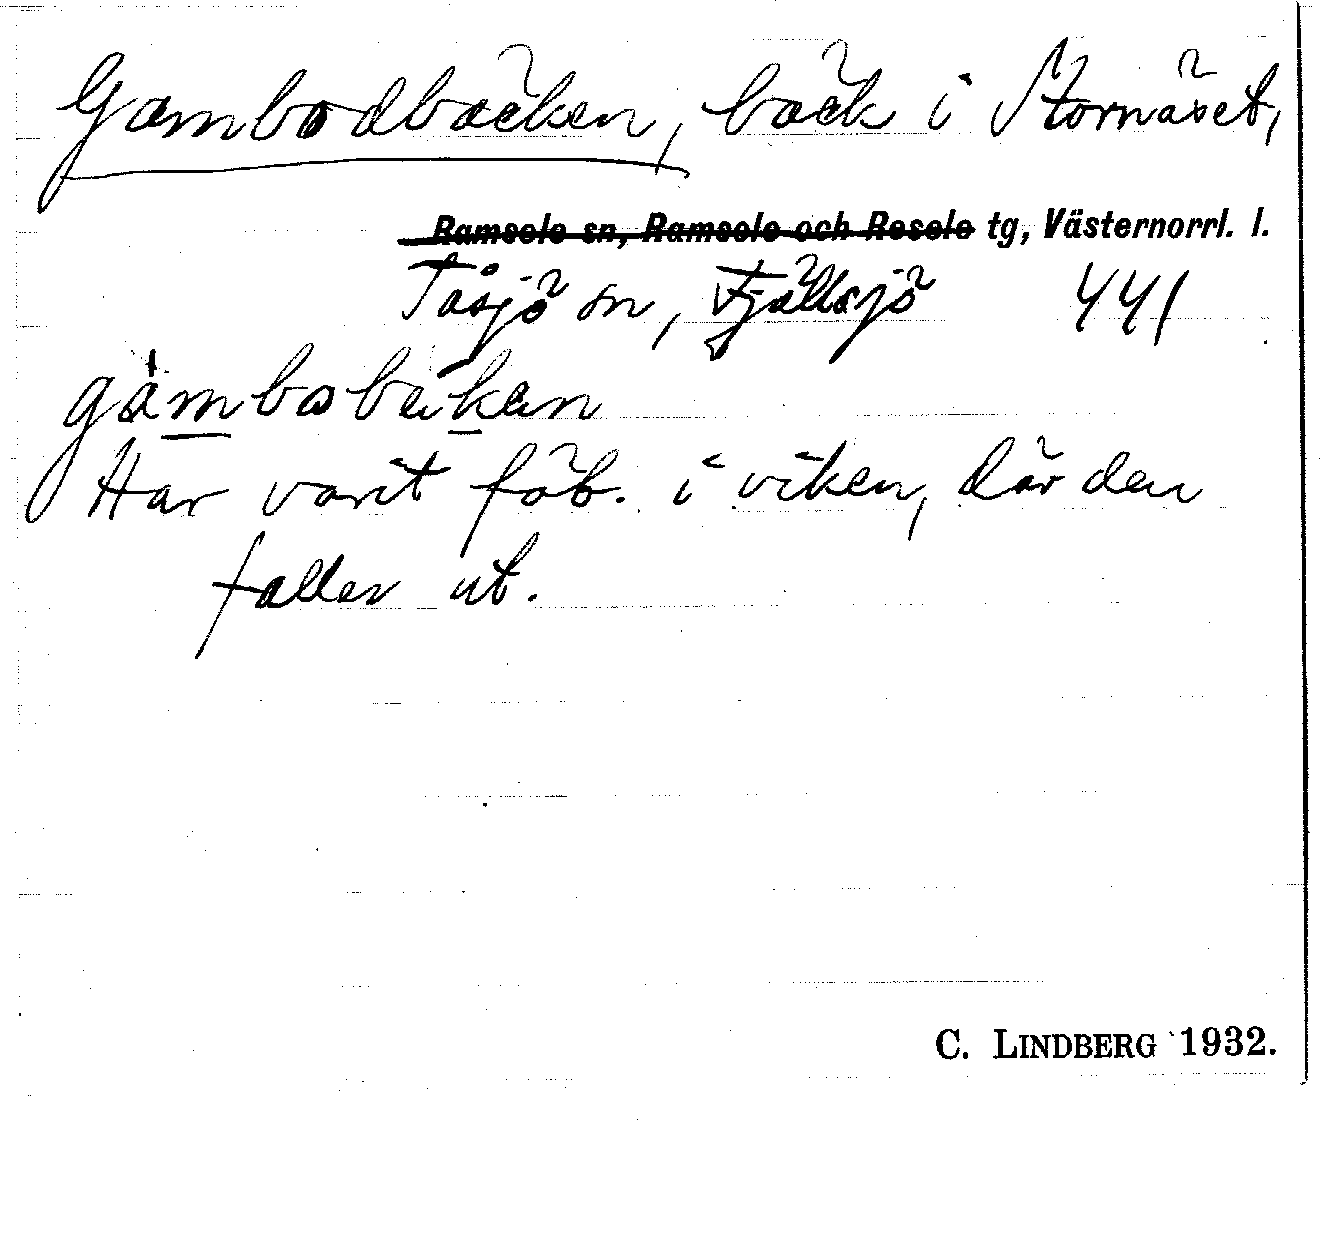 Gambodbäcken, bäck i Stornäset,
Ramsele sn, Ramsele och Resele tg, Västernorrl. l.
Tåsjö sn, Fjällsjö 441
gàmbobäkan
Har varit fäb. i viken, där den
faller ut.
C. LINDBERG 1932.